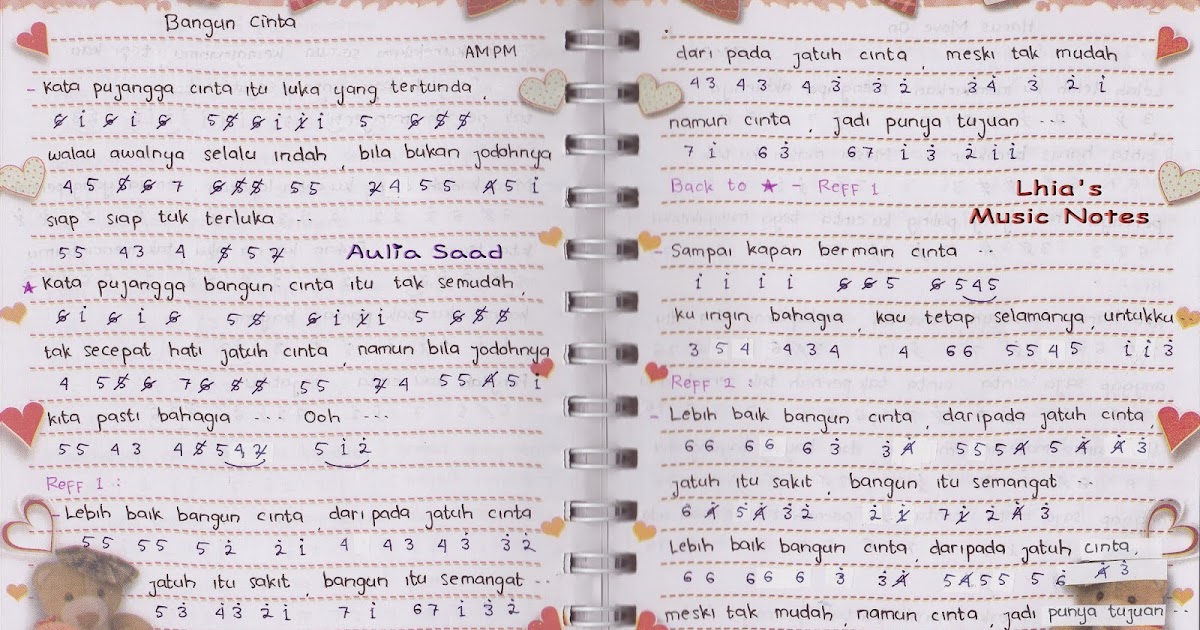 Bangun Cinta
AMPM
- Kata pujangga cinta itu luka yang tertunda,
6̸ i̇ 6̸ i̇ 6̸ 5 5̸ 6̸ i̇ i̸̇ i̇ 5 6̸ 5̸ 5̸
walau awalnya selalu indah, bila bukan jodohnya
4 5 5̸ 6̸ 7 6̸ 5̸ 5̸ 5 5 2̸ 4 5 5 4̸ 5 i̇
siap - siap tuk terluka ...
5 5 4 3 4 5̸ 5 2̸
Aulia Saad
★ Kata pujangga bangun cinta itu tak semudah,
6̸ i̇ 6̸ i̇ 6̸ 5 5̸ 6̸ i̇ i̸̇ i̇ 5 6̸ 5̸ 5̸
tak secepat hati jatuh cinta, namun bila jodohnya
4 5 5̸ 6̸ 7 6̸ 5̸ 5̸ 5 5 2̸ 4 5 5 4̸ 5 i̇
kita pasti bahagia .... Ooh ....
5 5 4 3 4 5̸ 5 4 2̸ 5 i̇ 2̇
Reff 1 :
- Lebih baik bangun cinta, dari pada jatuh cinta
5 5 5 5 5 2̇ 2̇ i̇ 4 4 3 4 3̇ 3̇ 2̇
jatuh itu sakit, bangun itu semangat ...
5 3̇ 4̇ 3̇ 2̇ i̇ 7 i̇ 6 7 i̇ 3̇ 2̇
dari pada jatuh cinta, meski tak mudah
4 3 4 3 4 3̇ 3̇ 2̇ 3̇ 4̇ 3̇ 2̇ i̇
namun cinta, jadi punya tujuan ...
7 i̇ 6 3̇ 6 7 i̇ 3̇ 2̇ i̇ i̇
Back to ★ - Reff 1
Lhia's
Music Notes
- Sampai kapan bermain cinta ..
i̇ i̇ i̇ i̇ 6̸ 6̸ 5 6̸ 5 4 5
ku ingin bahagia, kau tetap selamanya, untukku ..
3 5 4 4 3 4 4 6 6 5 5 4 5 i̇ i̇ 3̇
Reff 2 :
- Lebih baik bangun cinta, daripada jatuh cinta,
6 6 6 6 6 3̇ 3̇ 4̸̇ 5 5 5 4̸ 5 4̸̇ 4̸̇ 3̇
jatuh itu sakit, bangun itu semangat ...
6 4̸̇ 5 4̸̇ 3̇ 2̇ 2̇ i̸̇ 7 i̸̇ 2̇ 4̸̇ 3̇
Lebih baik bangun cinta, daripada jatuh cinta,
6 6 6 6 6 3̇ 3̇ 4̸̇ 5 4̸ 5 5 5 6̇ 4̸̇ 3̇
meski tak mudah, namun cinta, jadi punya tujuan ..